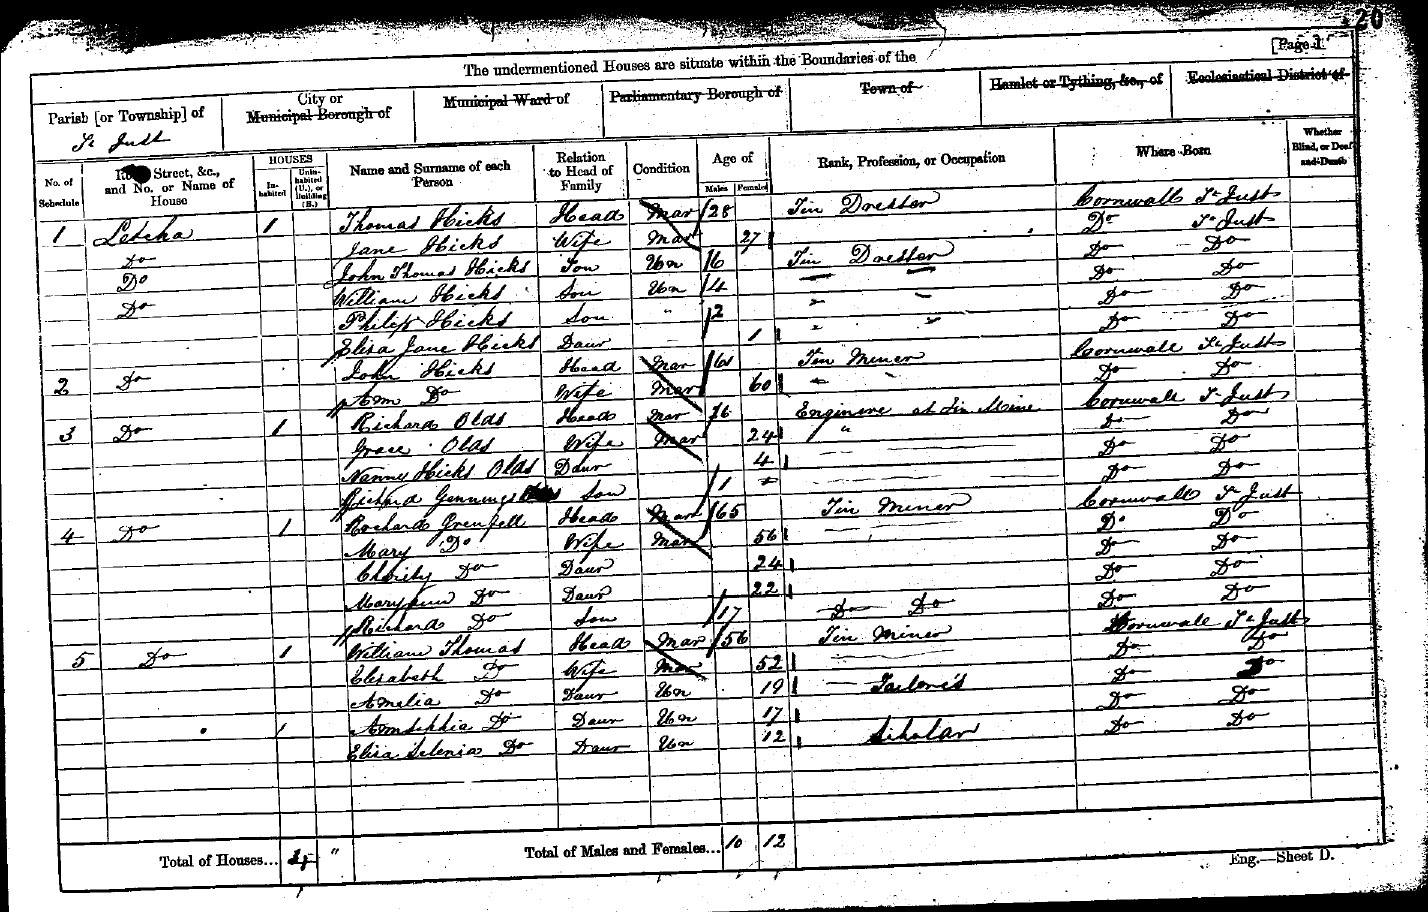 120
[Page 1
The undermentioned Houses are situate within the Boundaries of the
Parish [or Township] of
City or Municipal Borough of
Municipal Ward of
Parliamentary Borough of
Town of
Hamlet or Tything, &c., of
Ecclesiastical District of
St Just
No. of Schedule
Street, &c., and No. or Name of House
HOUSES
In-habited
Unin-habited (U.), or Building (B.)
Name and Surname of each Person
Relation to Head of Family
Condition
Age of
Males
Females
Rank, Profession, or Occupation
Where Born
Whether Blind, or Deaf and Dumb
1 Letcha 1 Thomas Hicks Head Mar 28 Tin Dresser Cornwall St Just
Jane Hicks Wife Mar 27 Do St Just
Do John Thomas Hicks Son Un 6 Tin Dresser Do Do
Do William Hicks Son Un 4 Do Do
Do Philip Hicks Son " 2 Do Do
Eliza Jane Hicks Daur 1 Do Do
2 Do John Hicks Head Mar 61 Tin Miner Cornwall St Just
Ann Do Wife Mar 60 Do Do
3 Do 1 Richard Olds Head Mar 26 at Tin Mine Cornwall St Just
Grace Olds Wife Mar 24 " Do Do
Nanny Hicks Olds Daur 4 Do Do
Richard Jennings Son 1 Do Do
4 Do 1 Richard Grenfell Head Mar 65 Tin Miner Cornwall St Just
Mary Do Wife Mar 56 Do Do
Christy Do Daur 24 Do Do
Mary Ann Do Daur 22 Do Do
Richard Do Son 17 Do Do Do Do
5 Do 1 William Thomas Head Mar 56 Tin Miner Cornwall St Just
Elizabeth Do Wife Mar 52 Do Do
Amelia Do Daur Un 19 Do Do
Do Daur Un 17 Do Do
Eliza Selenia Do Daur Un 12 Scholar Do Do
Total of Houses... 4 "
Total of Males and Females... 10 12
Eng.—Sheet D.